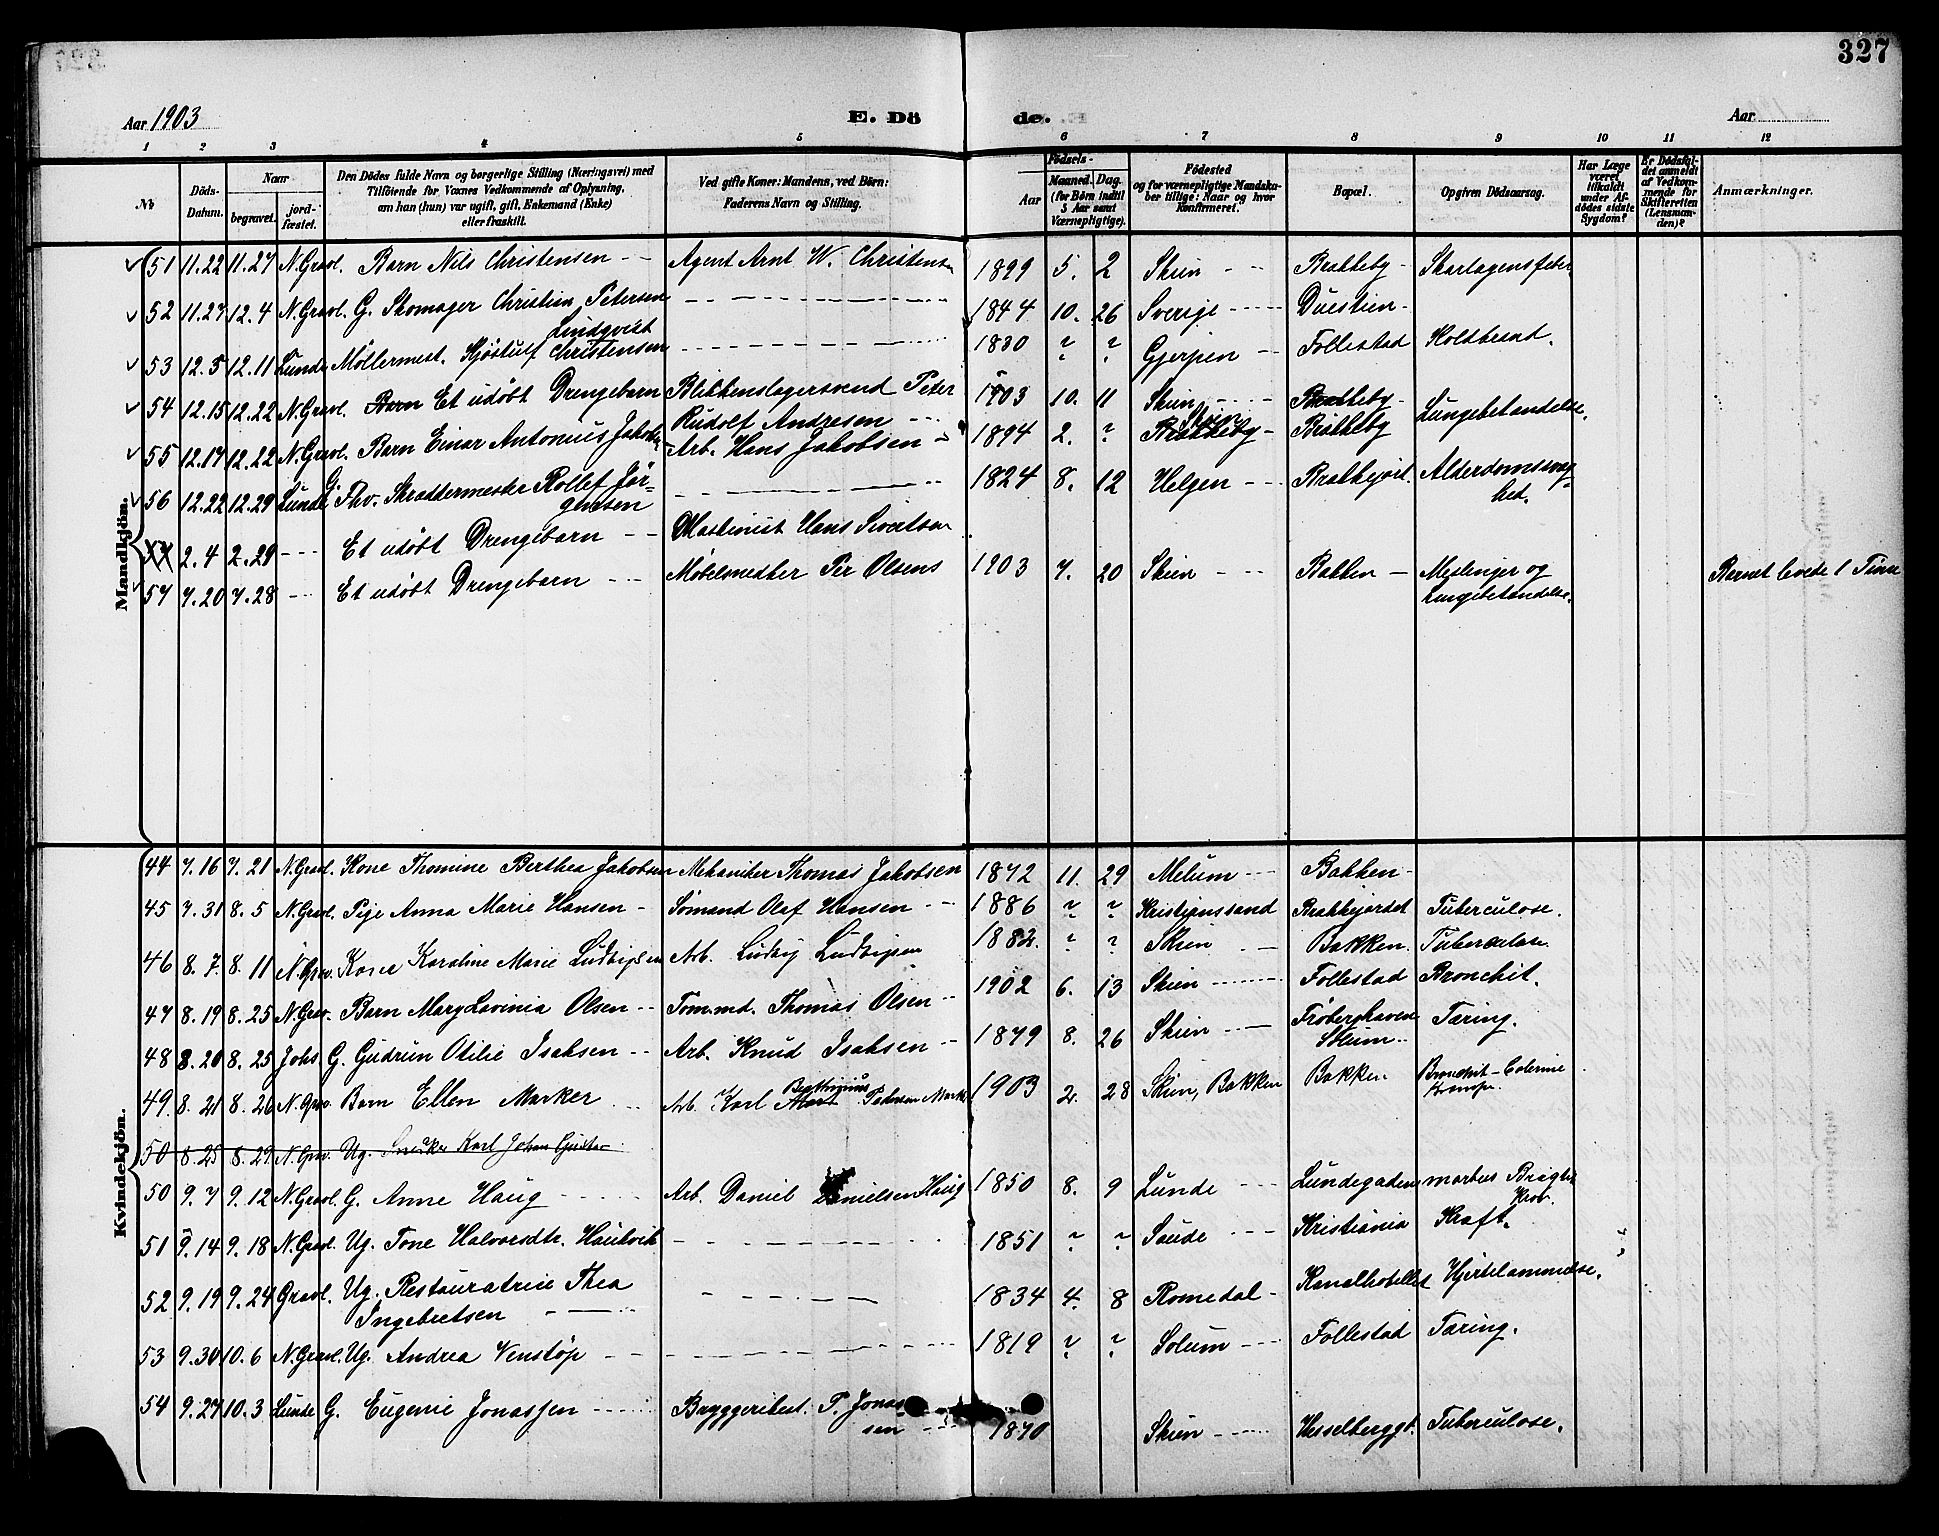 327
Aar 1903
E. Dö
de.
Aar
1 2 3 4 5 6 7 8 9 10 11 12
No
Döds-
Datum.
Naar
begravet.
jord-
fæstet.
Den Dödes fulde Navn og borgerlige Stilling (Næringsvei) med
Tilföiende for Voxnes Vedkommende af Oplysning,
om han (hun) var ugift, gift, Enkemand (Enke)
eller fraskilt.
Ved gifte Koner: Mandens, ved Börn:
Faderens Navn og Stilling.
Födsels-
Aar
Maaned. Dag.
(for Börn indtil
5 Aar samt
Værnepligtige).
Födested
og for værnepligtige Mandska-
ber tillige: Naar og hvor
Konfirmeret.
Bopæl.
Opgiven Dödsaarsag.
Har Læge
været
tilkaldt
under Af-
dödes sidste
Sygdom?
Er Dödsfal-
det anmeldt
af Vedkom-
mende for
Skifteretten
(Lensman-
den)?
Anmærkninger.
Mandkjön.
51 11.22 11.27 N. Gravl. Barn Nils Christensen Agent Arnt W. Christensen 1899 5. 2 Skien Bratteby Skarlagensfeber
52 11.27 12.4 N. Gravl. G. Skomager Christian Petersen 1844 10. 26 Sverige Duestien
Lindqvist
53 12.5 12.11 Lunde Möllermest. Kjöstulf Christensen 1830 ? ? Gjerpen Follestad Koldbrand.
54 12.15 12.22 N. Gravl. Barn Et udöbt Drengebarn Blikkenslagersvend Peter 1903 10. 11 Skien Bratteby
Rudolf Andresen
55 12.17 12.22 N. Gravl. Barn Einar Antonius Jakobs Arb. Hans Jakobsen 1894 2. ? Bratteby Bratteby Lungebetændelse.
56 12.22 12.29 Lunde G. Fhv. Skræddermester Rollef Jör- 1824 8. 12 Helgen Brækkejord. Alderdomssvag-
gensen hed.
XX 2.4 2.29 Et udöbt Drengebarn Maskinist Hans Sivertsen
57 7.20 7.28 Et udöbt Drengebarn Möbelsnedker Per Olsens 1903 7. 20 Skien Bakken Meslinger og Barnet levede 1 Time
Lungebetændelse.
Kvindekjön.
44 7.16 7.21 N. Gravl. Kone Thomine Berthea Jakobsen Mekaniker Thomas Jakobsen 1872 11. 29 Melum Bakken
45 7.31 8.5 N. Gravl. Pige Anna Marie Hansen Sömand Olaf Hansen 1886 ? ? Kristianssand Brækkejordet Tuberculose.
46 8.7 8.11 N. Grav. Kone Karoline Marie Ludvigsen Arb. Ludvig Ludvigsen 1882. ? ? Skien Bakken. Tuberculose.
47 8.19 8.25 N. Grav. Barn Mary Lovinia Olsen Tömmd. Thomas Olsen 1902 6. 13 Skien Follestad Bronchit.
48 8.20 8.25 Johs G. Gudrun Otilie Isaksen Arb. Knud Isaksen 1879 8. 26 Skien Fröberghaven Tæring.
Solum
49 8.21 8.26 N. Grav. Barn Ellen Marker Arb. Karl Pedersen Marker 1903 2. 28 Skien, Bakken Bakken Bronchit - Colerine
Krampe.
50 8.25 8.29 N. Grav. Ug. Snedker Karl Johan Gustav
50 9.7 9.12 N. Gravl. G. Anne Haug Arb. Daniel Danielsen Haug 1850 8. 9 Lunde Lundegaden morbus Brigtii
Kron.
51 9.14 9.18 N. Gravl. Ug. Tone Halvorsdtr. Haukvik 1851 ? ? Saude Kristiania Kræft.
52 9.19 9.24 Gravl. Ug. Restauratrice Thea 1834 4. 8 Romedal Kanalhotellet Hjertelammelse.
Ingebretsen
53 9.30 10.6 N. Gravl. Ug. Andrea Venstöp 1819 ? ? Solum Follestad Tæring.
54 9.27 10.3 Lunde G. Eugenie Jonassen Bryggeribest. P. Jonas-
sen 1870 Skien Hesselberggt. Tuberculose.